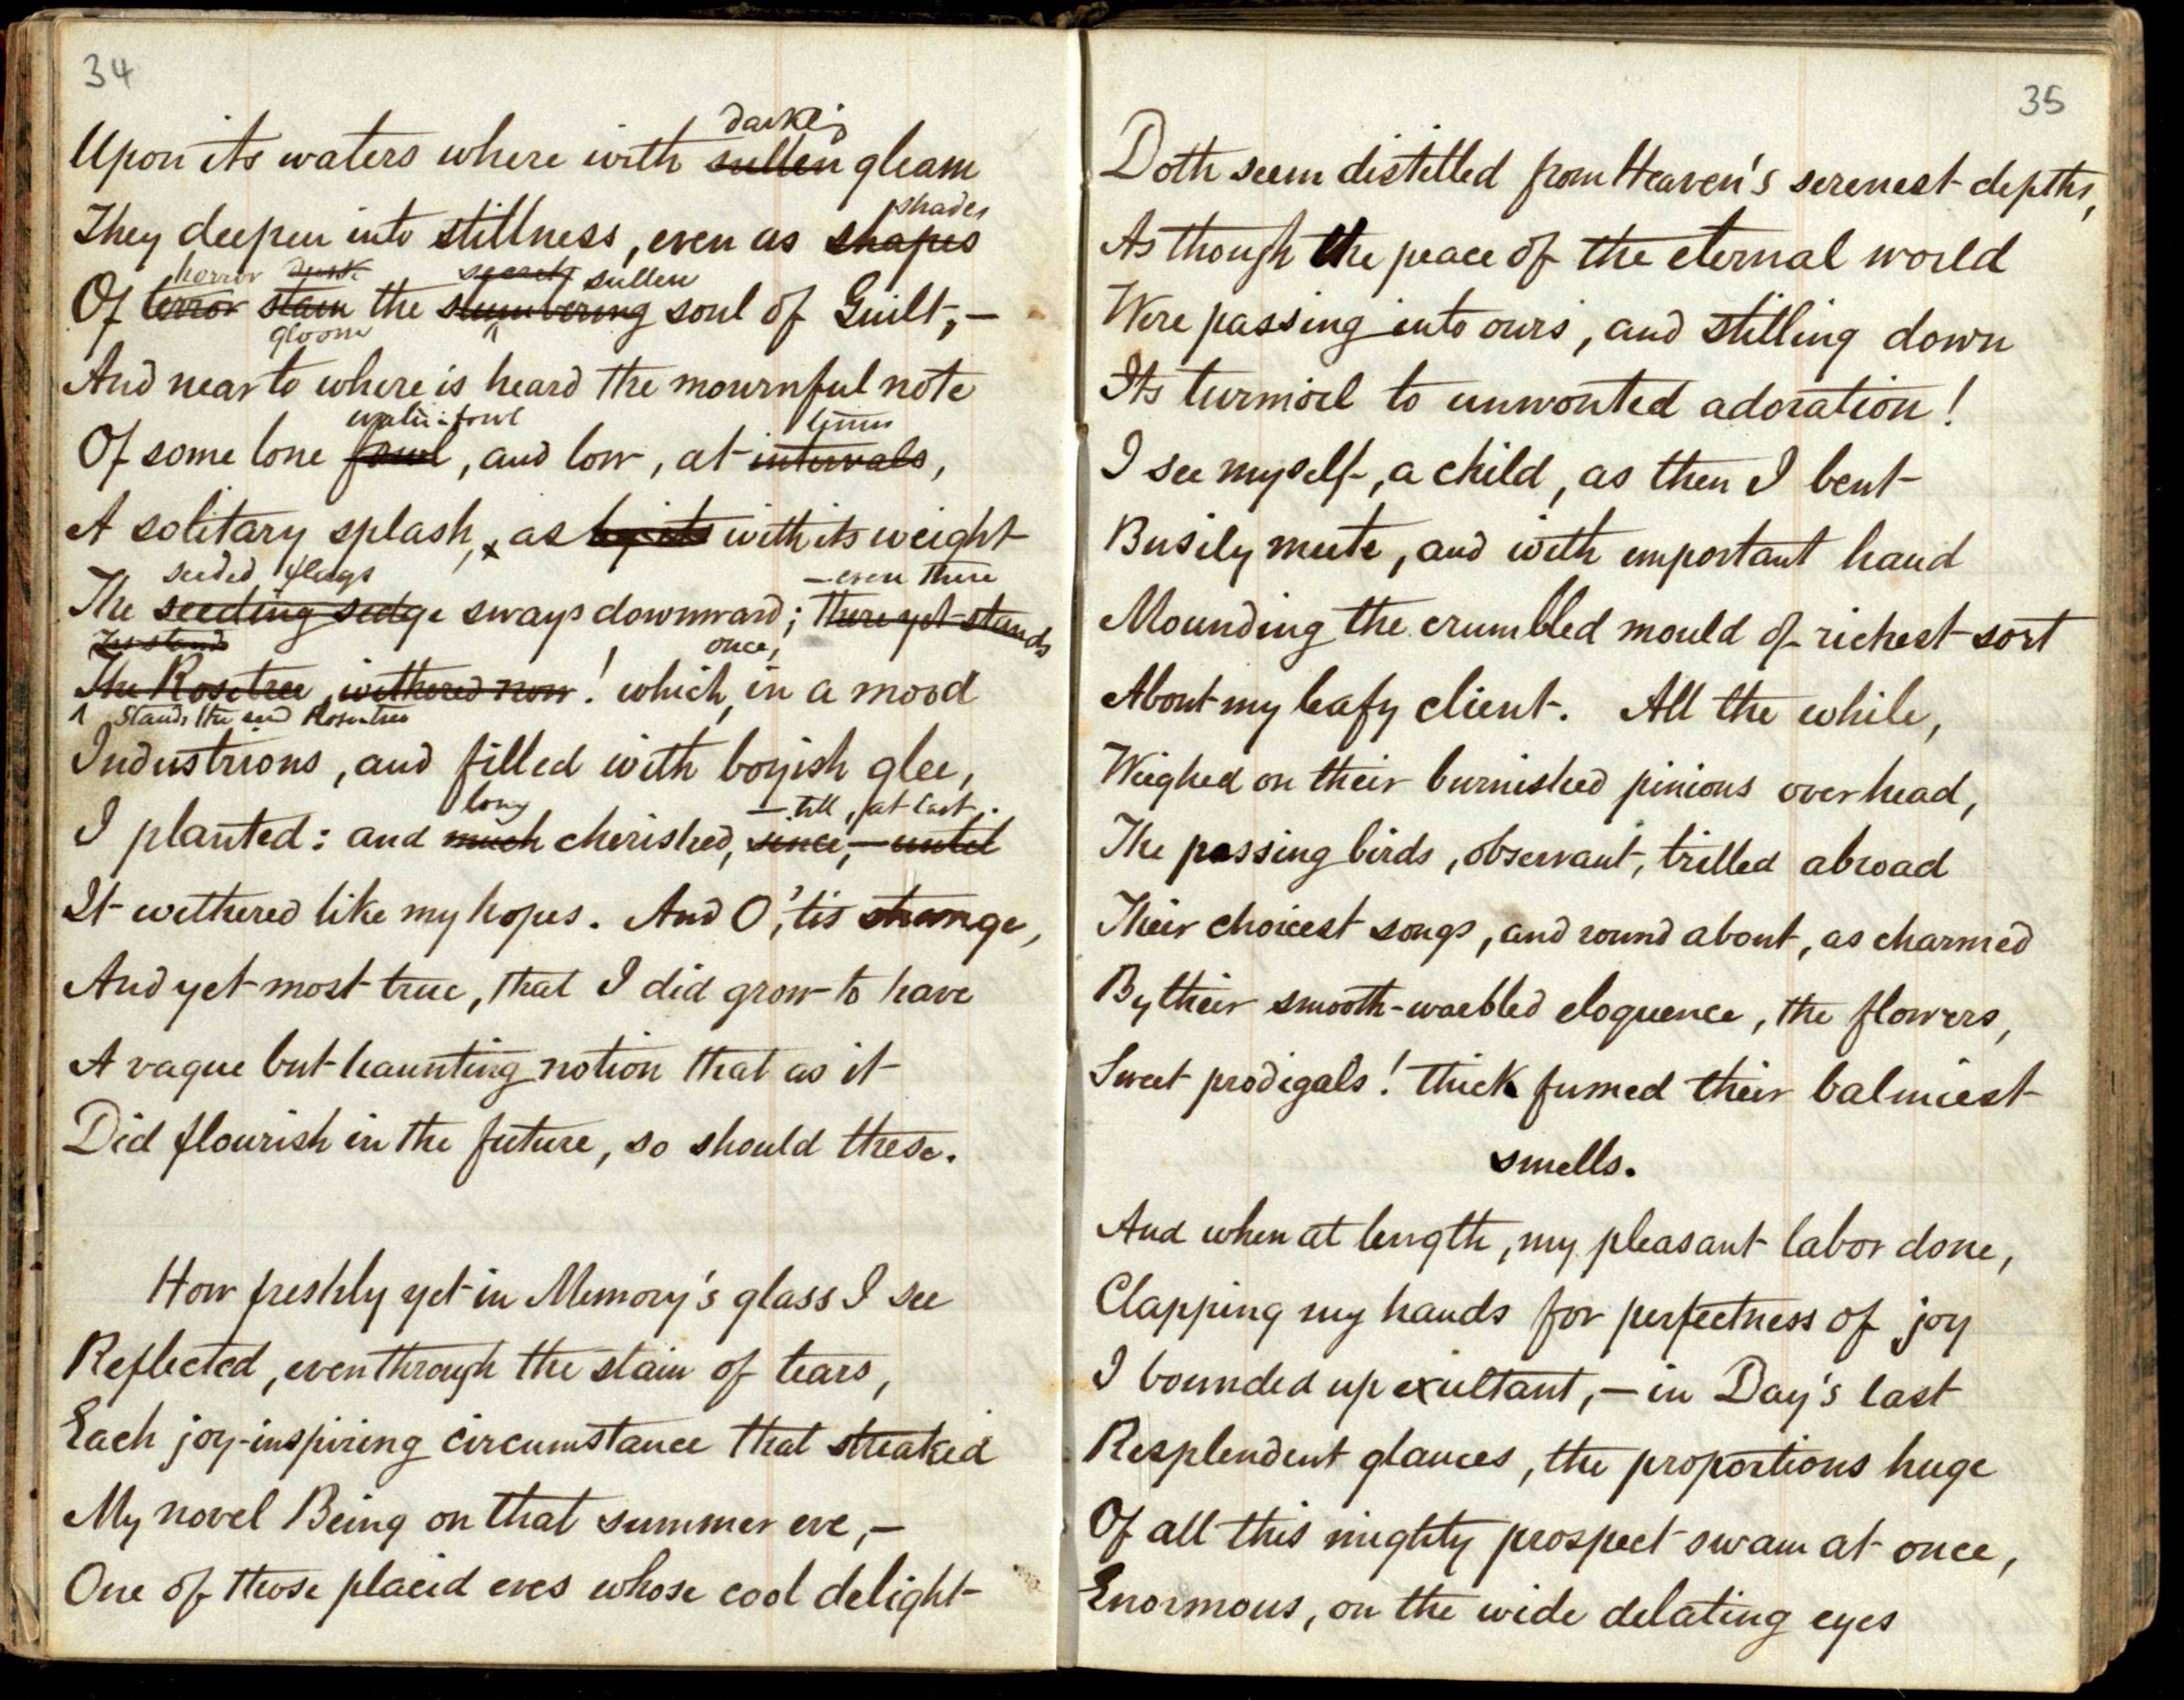 34
darking
Upon its waters where with sullen gleam
shades
They deepen into stillness, even as shapes
horror dusk secret sullen
Of terror stain the slumbering soul of Guilt,—
gloom
And near to where is heard the mournful note
water-fowl times
Of some lone fowl, and low, at intervals,
A solitary splash, as by its with its weight
seeded flags —even there
The seeding sedge sways downward; There yet stands
once,
The Rosetree, withered now! which, in a mood
Stands the Rosetree
Industrious, and filled with boyish glee,
long —till, at last,
I planted: and much cherished, since,—until
It withered like my hopes. And O, 'tis strange,
And yet most true, that I did grow to have
A vague but haunting notion that as it
Did flourish in the future, so should these.
How freshly yet in Memory's glass I see
Reflected, even through the stain of tears,
Each joy-inspiring circumstance that streaked
My novel Being on that summer eve,—
One of those placid eves whose cool delight
35
Doth seem distilled from Heaven's serenest depths,
As though the peace of the eternal world
Were passing into ours, and stilling down
Its turmoil to unwonted adoration!
I see myself, a child, as then I bent
Busily mute, and with important hand
Mounding the crumbled mould of richest sort
About my leafy client. All the while,
Weighed on their burnished pinions overhead,
The passing birds, observant, trilled abroad
Their choicest songs, and round about, as charmed
By their smooth-warbled eloquence, the flowers,
Sweet prodigals! thick fumed their balmiest
smells.
And when at length, my pleasant labor done,
Clapping my hands for perfectness of joy
I bounded up exultant,—in Day's last
Resplendent glances, the proportions huge
Of all this mighty prospect swam at once,
Enormous, on the wide dilating eyes